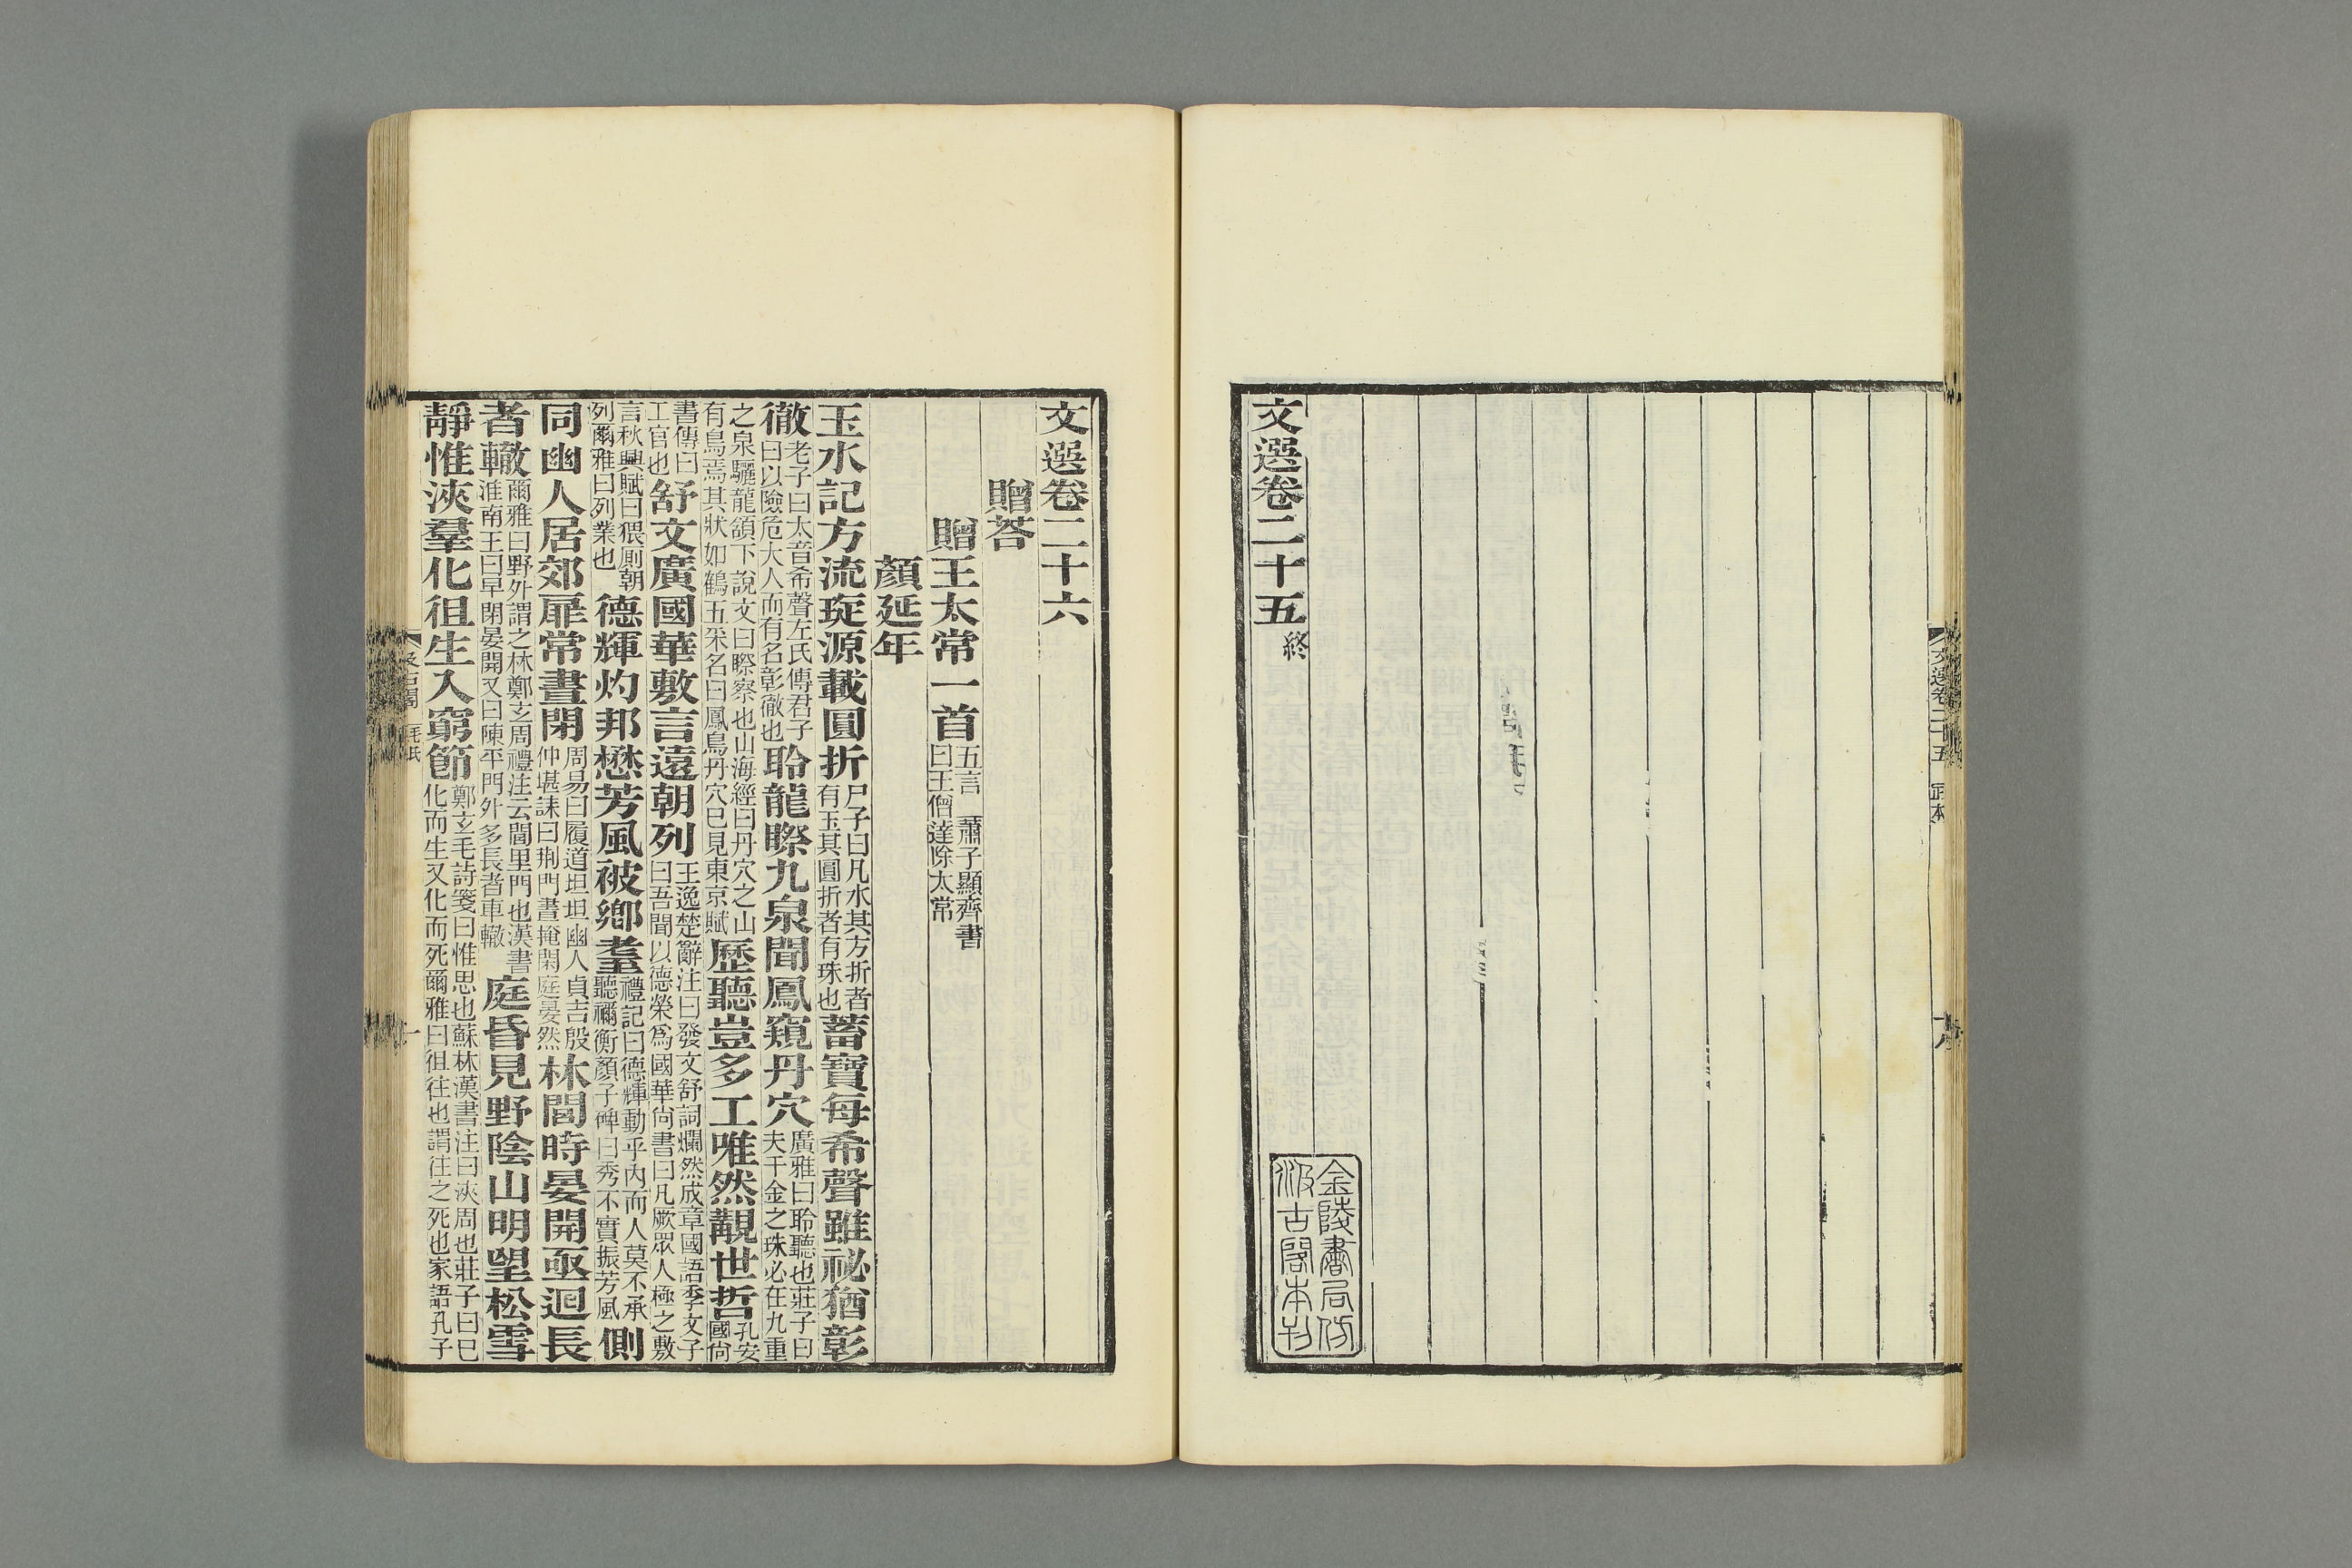 文選卷二十五終
金陵書局仿
汲古閣本刊
文選卷二十六
贈荅
贈王太常一首五言 蕭子顯齊書曰王僧達除太常
顏延年
玉水記方流琁源載圓折尸子曰凡水其方折者有玉其圓折者有珠也蓄寶每希聲雖祕猶彰
徹老子曰大音希聲左氏傳君子曰以險危大人而有名彰徹也聆龍䁃九泉聞鳳窺丹穴廣雅曰聆聽也莊子曰夫千金之珠必在九重
之泉驪龍頷下說文曰䁃察也山海經曰丹穴之山有鳥焉其狀如鶴五采名曰鳳鳥丹穴已見東京賦歷聽豈多工唯然覯世哲孔安國尚
書傳曰工官也舒文廣國華敷言遠朝列王逸楚辭注曰發文舒詞爛然成章國語季文子曰吾聞以德榮為國華尚書曰凡厥眾人極之敷
言秋興賦曰猥厠朝列爾雅曰列業也德輝灼邦懋芳風被鄉耋禮記曰德輝動乎內而人莫不承聽禰衡顏子碑曰秀不實振芳風側
同幽人居郊扉常晝閉周易曰履道坦坦幽人貞吉殷仲堪誄曰荆門晝掩閑庭晏然林閭時晏開亟迴長
者轍爾雅曰野外謂之林鄭玄周禮注云閭里門也漢書淮南王曰早閉晏開又曰陳平門外多長者車轍庭昏見野陰山明望松雪
靜惟浹羣化徂生入窮節鄭玄毛詩箋曰惟思也蘇林漢書注曰浹周也莊子曰已化而生又化而死爾雅曰徂往也謂往之死也家語孔子